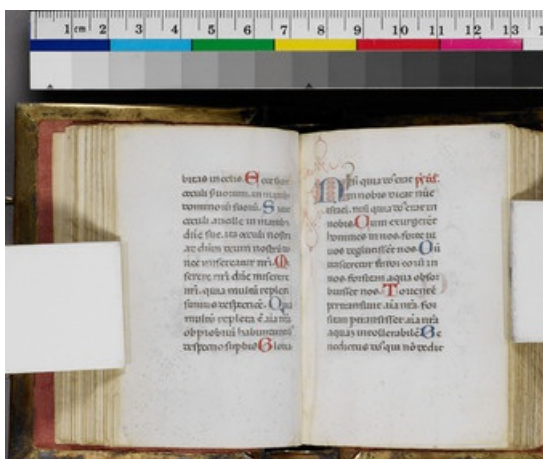 1 cm 2 3 4 5 6 7 8 9 10 11 12 13
bitas in celis. Ecce sicut
oculi suorum. in manibꝰ
dominoꝝ suoꝝ. Sicut
oculi ancille in manibꝰ
dñe sue. ita oculi nostri
ad dñm deum nostrū do
nec misereatur nr̄i. M
serere nr̄i dñe miserere
nr̄i. quia multū repleti
sumus despectiōe. Quia
multū repleta ē aīa nr̄a
obprobriū habundantibꝰ
despectio supbis Gloria
Nisi quia dn̄s erat ps̄us.
in nobis dicat nūc
israel. nisi quia dn̄s erat in
nobis Cum exurgerent
homines in nos. forte ui
uos deglutissēt nos. Cū
irasceretur furor eoꝝ in
nos. forsitan aqua obsor
buisset nos. Torrentē
pertransiuit aīa nr̄a. for
sitan pertransisset aīa nr̄a
aquaz intollerabilē. Be
nedictus dn̄s qui nō dedit